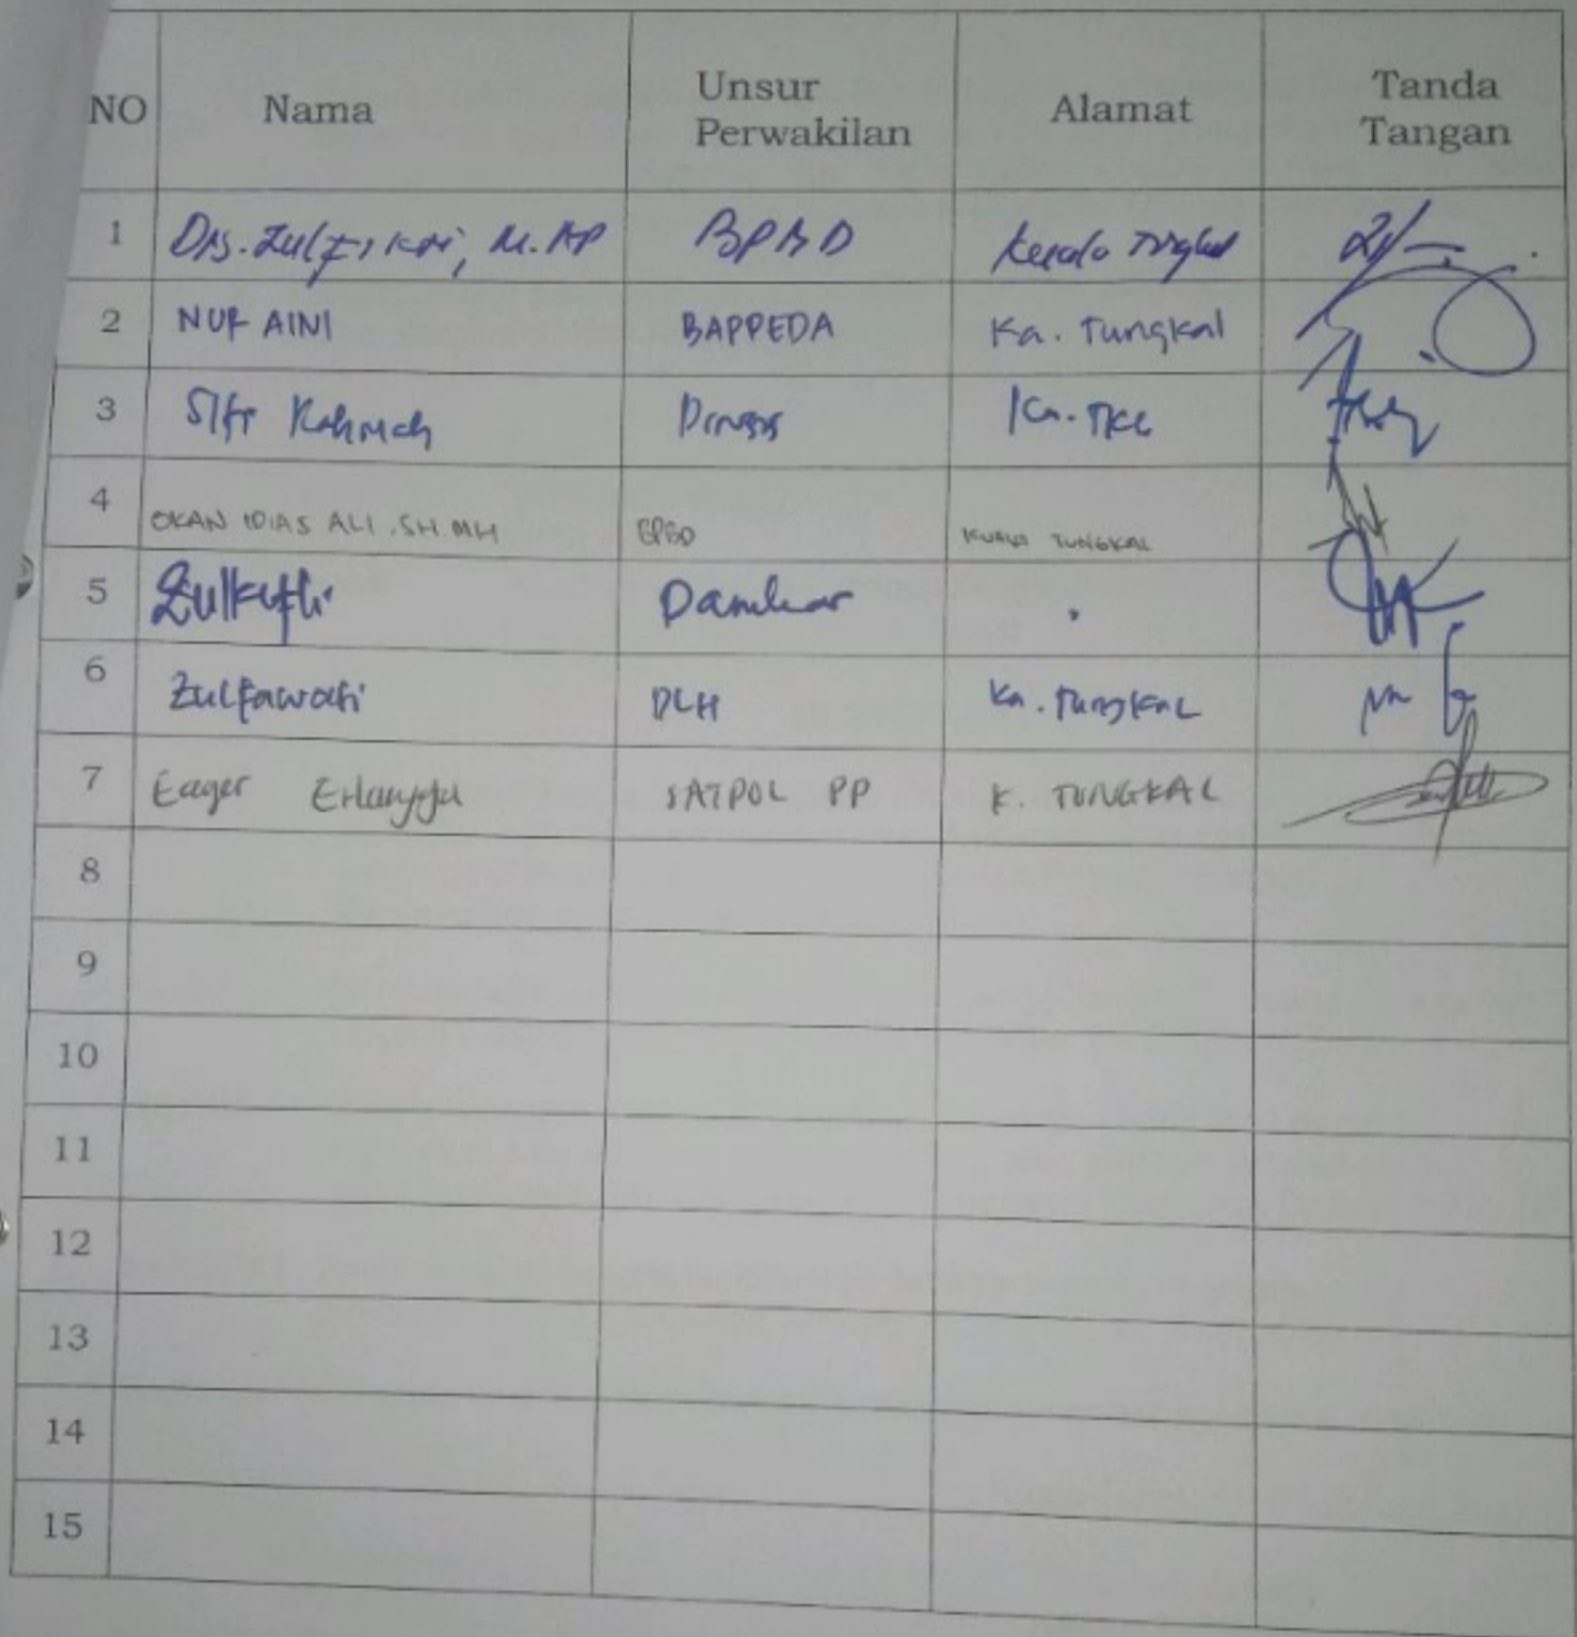 NO Nama Unsur Perwakilan Alamat Tanda Tangan
1 Drs. Zulfikri, M.AP BPBD Kuala Tungkal
2 NUR AINI BAPPEDA Ka. Tungkal
3 Rahmah Dinsos Ka. TKL
4 OKAN IDIAS ALI .SH.MH BPBD KUALA TUNGKAL
5 Zulkifli Damkar
6 Zulfawati DLH Ka. Tungkal
7 Eager Erlangga SATPOL PP K. TUNGKAL
8
9
10
11
12
13
14
15